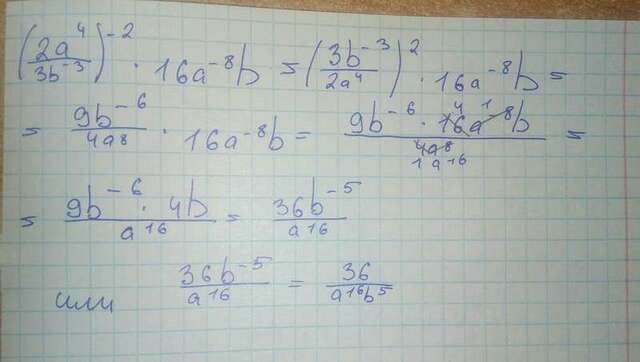 (2a⁴/3b⁻³)⁻² · 16a⁻⁸b = (3b⁻³/2a⁴)² · 16a⁻⁸b =
= 9b⁻⁶/4a⁸ · 16a⁻⁸b = 9b⁻⁶ · 16 4 a⁻⁸ 1 b/4a⁸ 1 a¹⁶ =
= 9b⁻⁶ · 4b/a¹⁶ = 36b⁻⁵/a¹⁶
или 36b⁻⁵/a¹⁶ = 36/a¹⁶b⁵